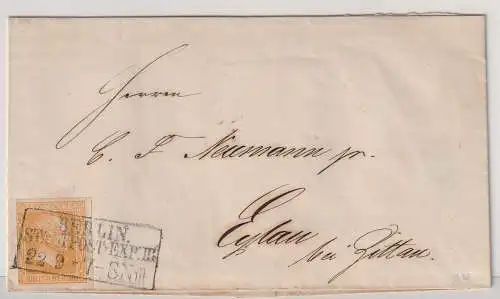 Herrn
C. F. Neumann jr.
Eylau
bei Zittau.
BERLIN
POST-EXP. III
22 9 -8N